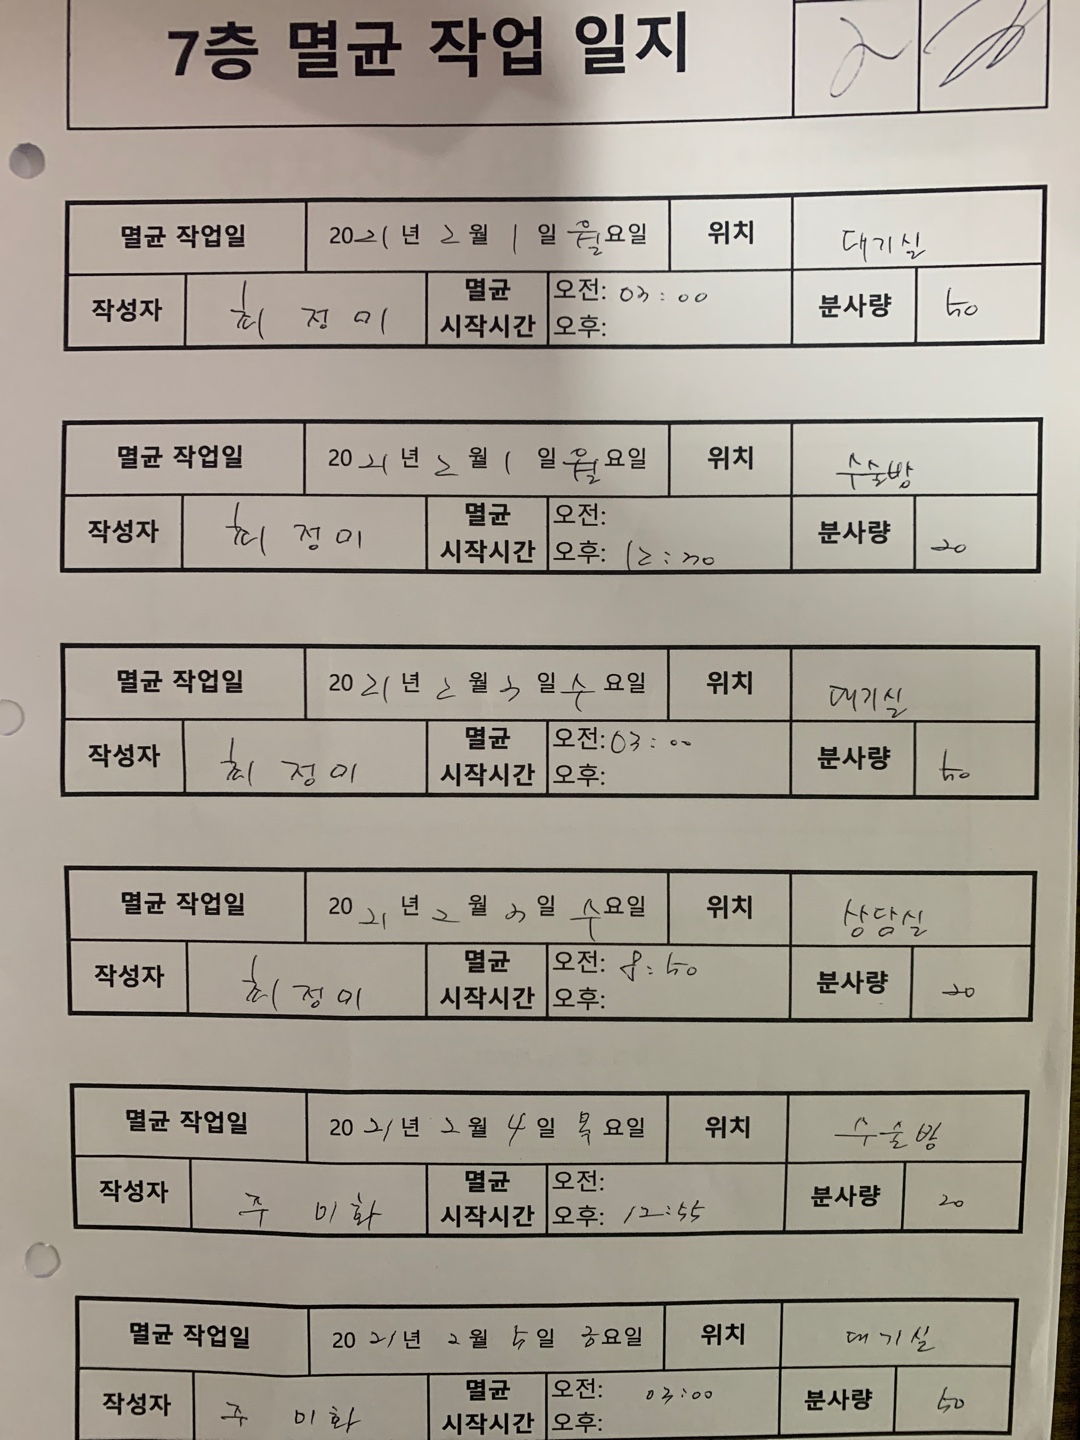 7층 멸균 작업 일지
멸균 작업일 2021년 2월 1일 월요일 위치 대기실
작성자 최정미 멸균 시작시간 오전: 03:00 오후: 분사량 50
멸균 작업일 2021년 2월 1일 월요일 위치 수술방
작성자 최정미 멸균 시작시간 오전: 오후: 12:30 분사량 20
멸균 작업일 2021년 2월 3일 수요일 위치 대기실
작성자 최정미 멸균 시작시간 오전: 03:00 오후: 분사량 50
멸균 작업일 2021년 2월 3일 수요일 위치 상담실
작성자 최정미 멸균 시작시간 오전: 8:50 오후: 분사량 20
멸균 작업일 2021년 2월 4일 목요일 위치 수술방
작성자 주미화 멸균 시작시간 오전: 오후: 12:55 분사량 20
멸균 작업일 2021년 2월 5일 금요일 위치 대기실
작성자 주미화 멸균 시작시간 오전: 03:00 오후: 분사량 50